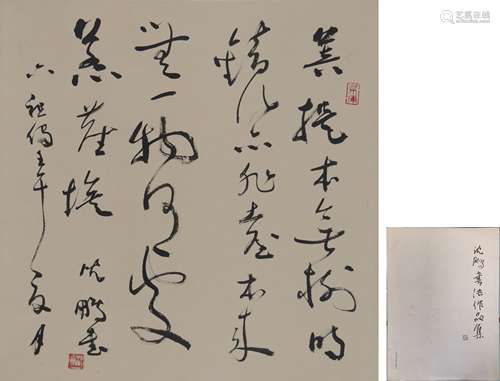 菩提本無樹明
鏡亦非臺本來
無一物何處
惹塵埃 沈鵬書
六祖偈壬午夏月
沈鵬書法作品集
艺狐在线